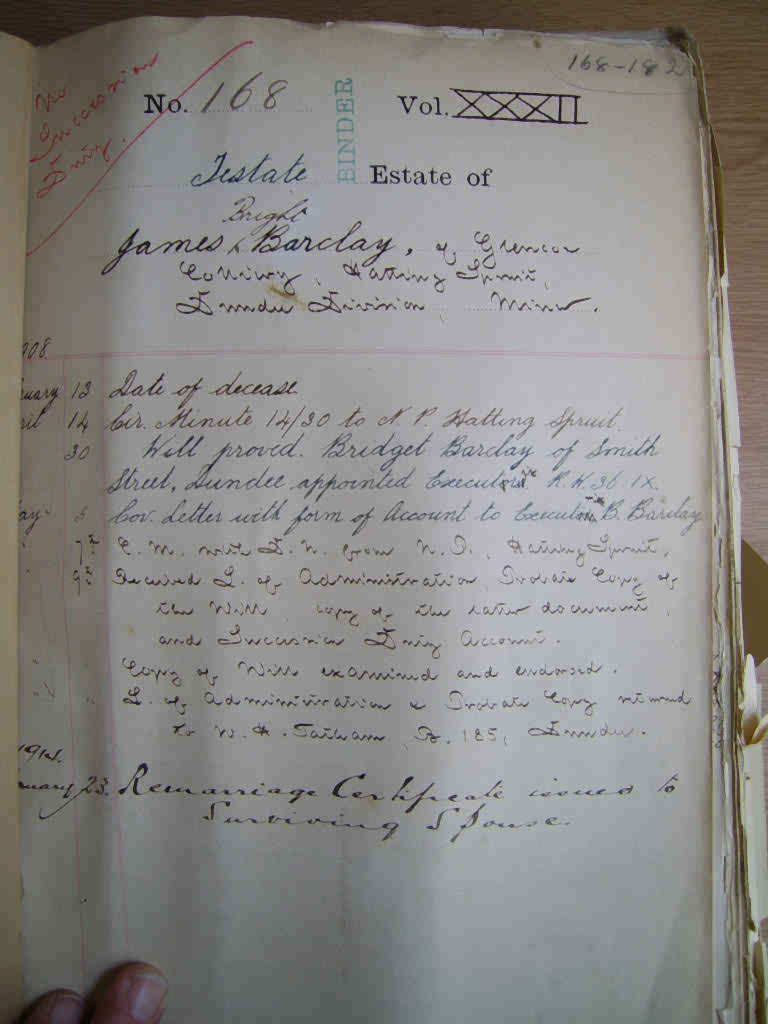 168-182
No Succession Duty.
No. 168 Vol. XXXII
BINDER
Testate Estate of
Bright
James ^ Barclay, of Glencoe
Colliery, Hatting Spruit,
Dundee Division, Miner.
908
ruary 13 Date of decease.
ril 14 Cir. Minute 14/30 to N. P. Hatting Spruit.
30 Will proved. Bridget Barclay of Smith
Street, Dundee appointed Executrix R.K. 36. 1X.
ay 5 Cov. Letter with form of Account to Executrix B. Barclay
" 7th C. M. with D. N. from N. P., Hatting Spruit.
" 9th Received L. of Administration, Probate Copy of
the Will, copy of the later document,
and Succession Duty Account.
" Copy of Will examined and endorsed.
" " L. of Administration & Probate Copy returned
to W. H. Tatham, B. 185, Dundee.
191
nuary 23. Remarriage Certificate issued to
Surviving Spouse.